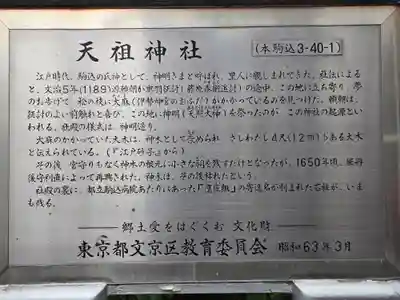 天祖神社
(本駒込3-40-1)
江戸時代、駒込の氏神として、神明さまと呼ばれ、里人に親しまれてきた。社伝によると、
文治5年(1189)源頼朝が奥羽征討(藤原泰衡追討)の途中、この地に立ち寄り、夢
のお告げで 松の枝に大麻(伊勢神宮のおふだ)がかかっているのを見つけた。頼朝は、
追討のよい前触れと喜び、この地に神明(天照大神)を祭ったのが、この神社の起源とい
われる。社殿の様式は、神明造り。
大麻のかかっていた大木は、神木として崇められ さしわたし4尺(1.2m)もある大木
と伝えられている。(『江戸砂子』から)
その後 宮守りもなく神木の根元に小さな祠を残すだけとなったが、1650年頃、堀丹
後守利直によって再興された。神木は、その後枯れたという。
社殿の裏に、都立駒込病院あたりにあった「 」の寄進名が刻まれた石柱が、いま
も残る。
郷土愛をはぐくむ 文化財
東京都文京区教育委員会 昭和63年3月